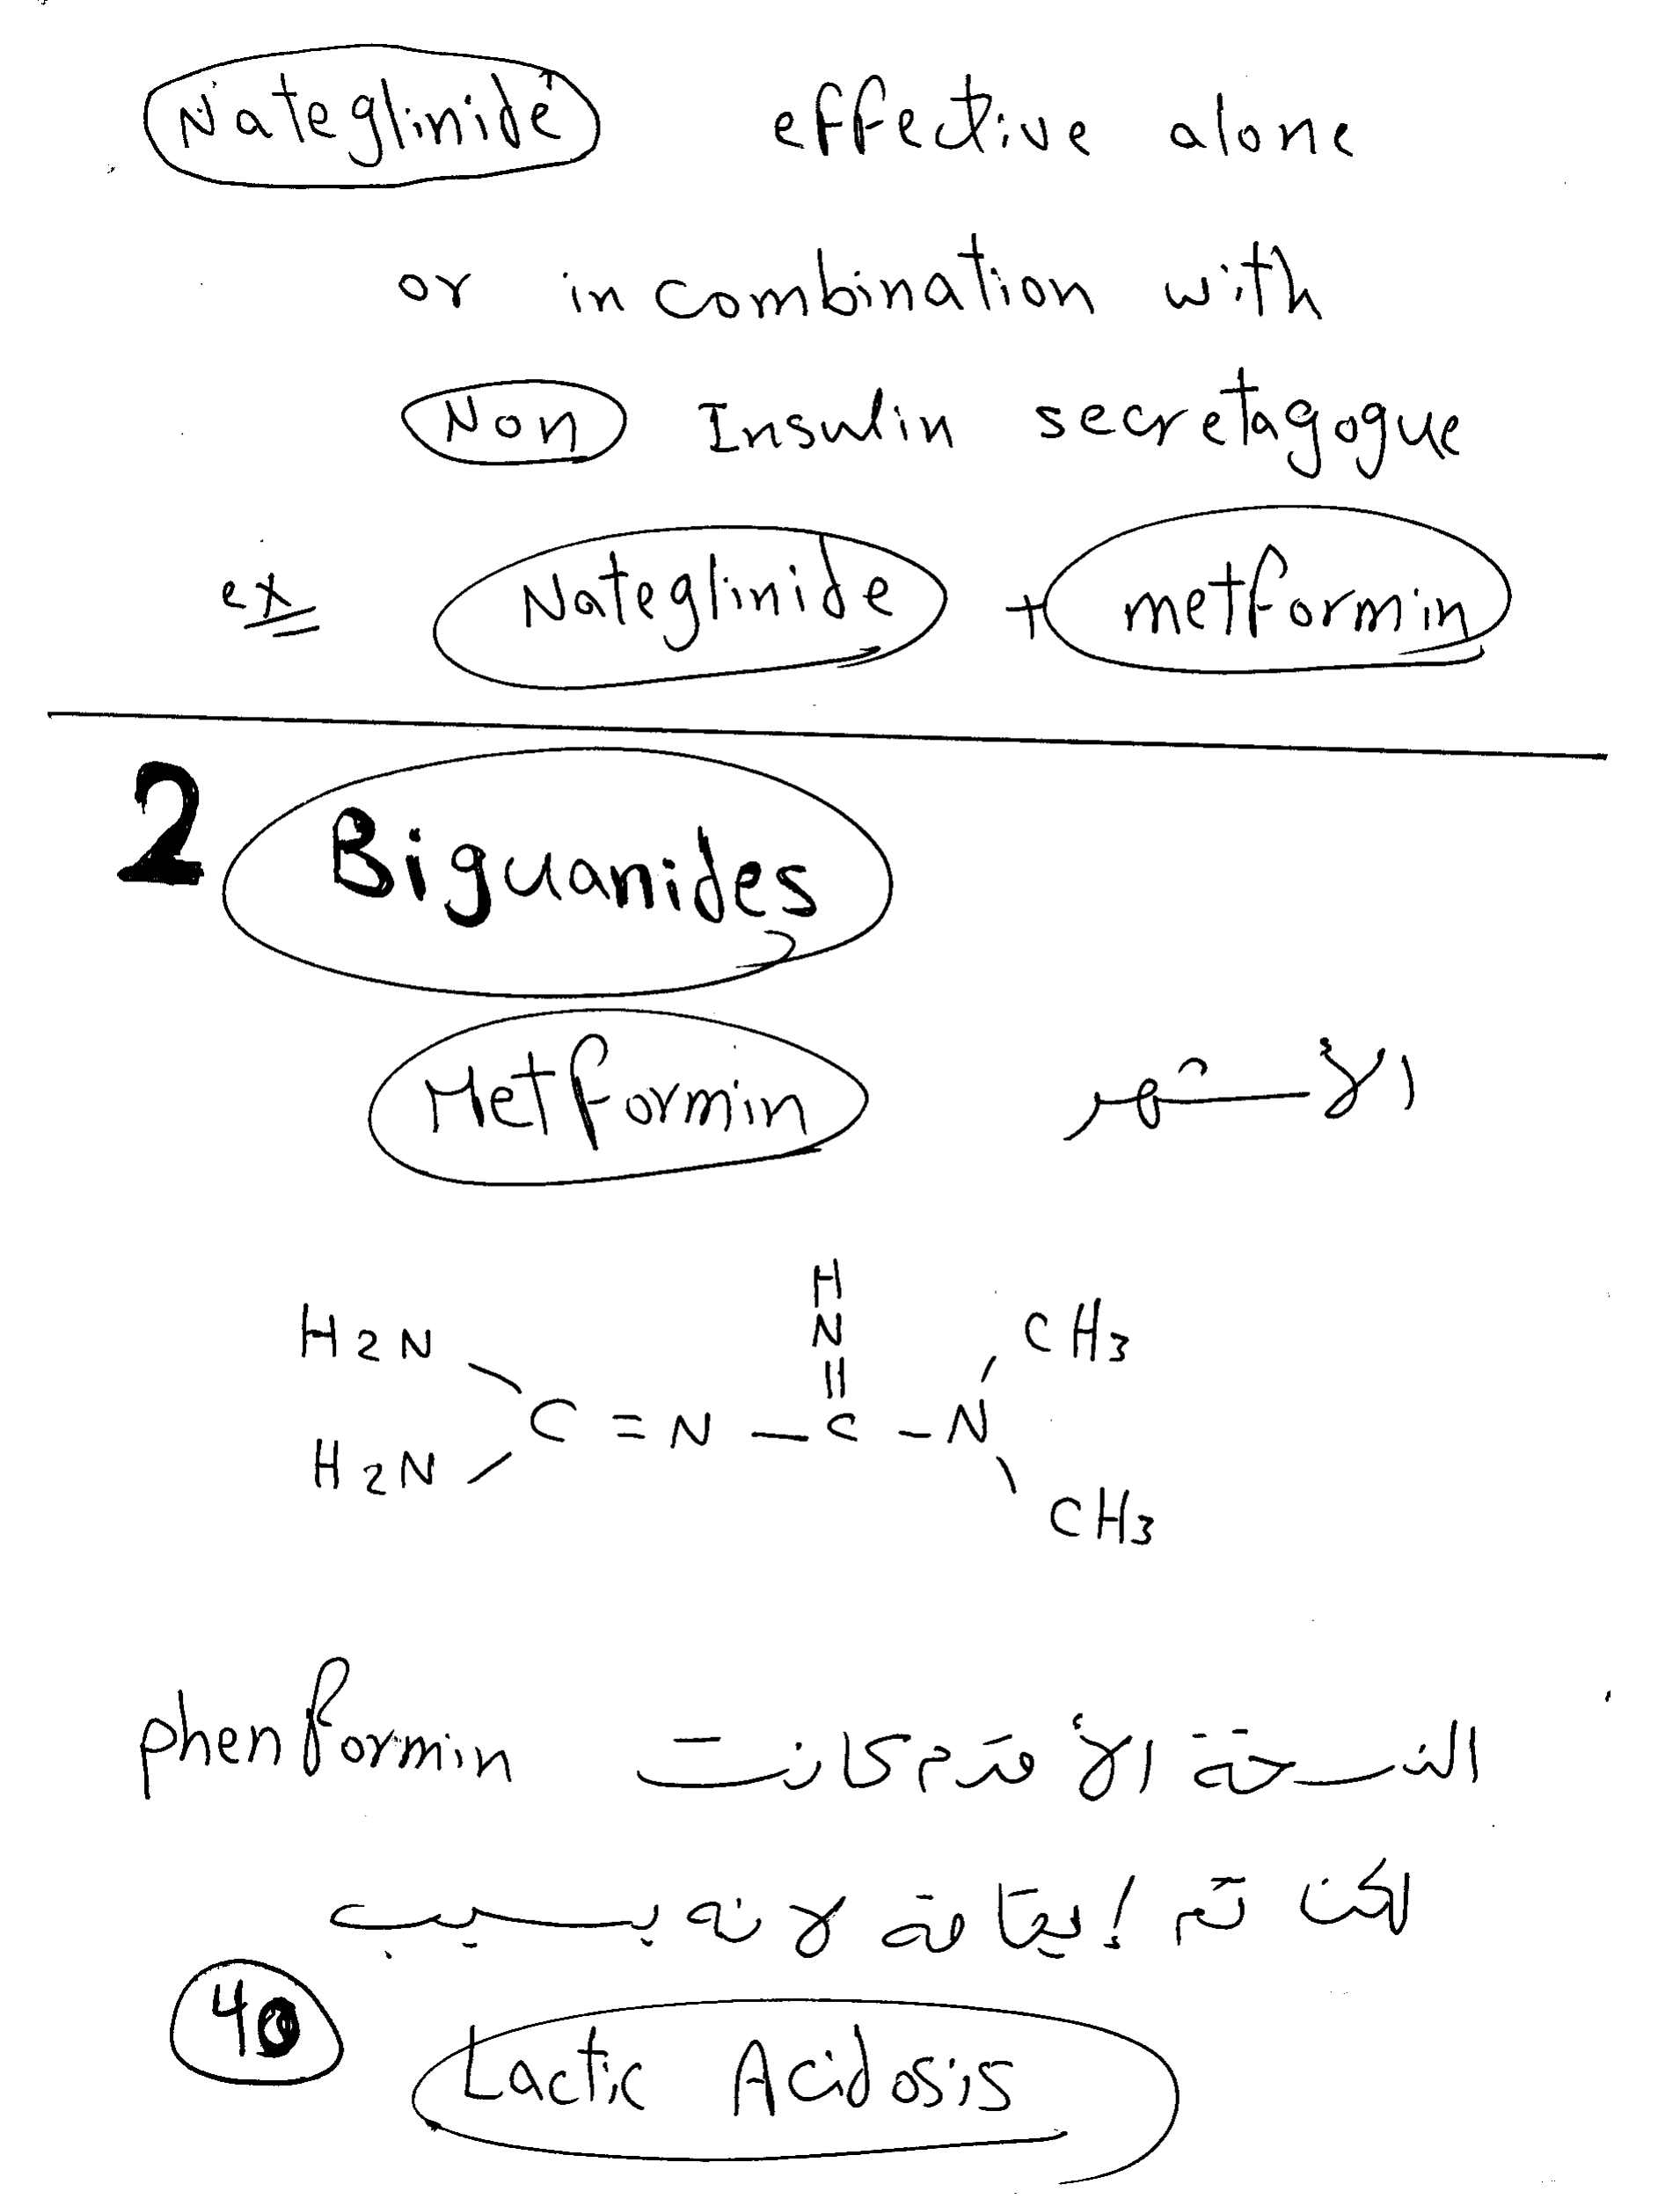 Nateglinide effective alone
or in combination with
Non Insulin secretagogue
ex Nateglinide + metformin
2 Biguanides
Metformin الأشهر
H
H2N N CH3
||
C = N — C – N
H2N
CH3
النسخة الأقدم كانت phenformin
لكن تم إيقافة لانه يسبب
40
Lactic Acidosis